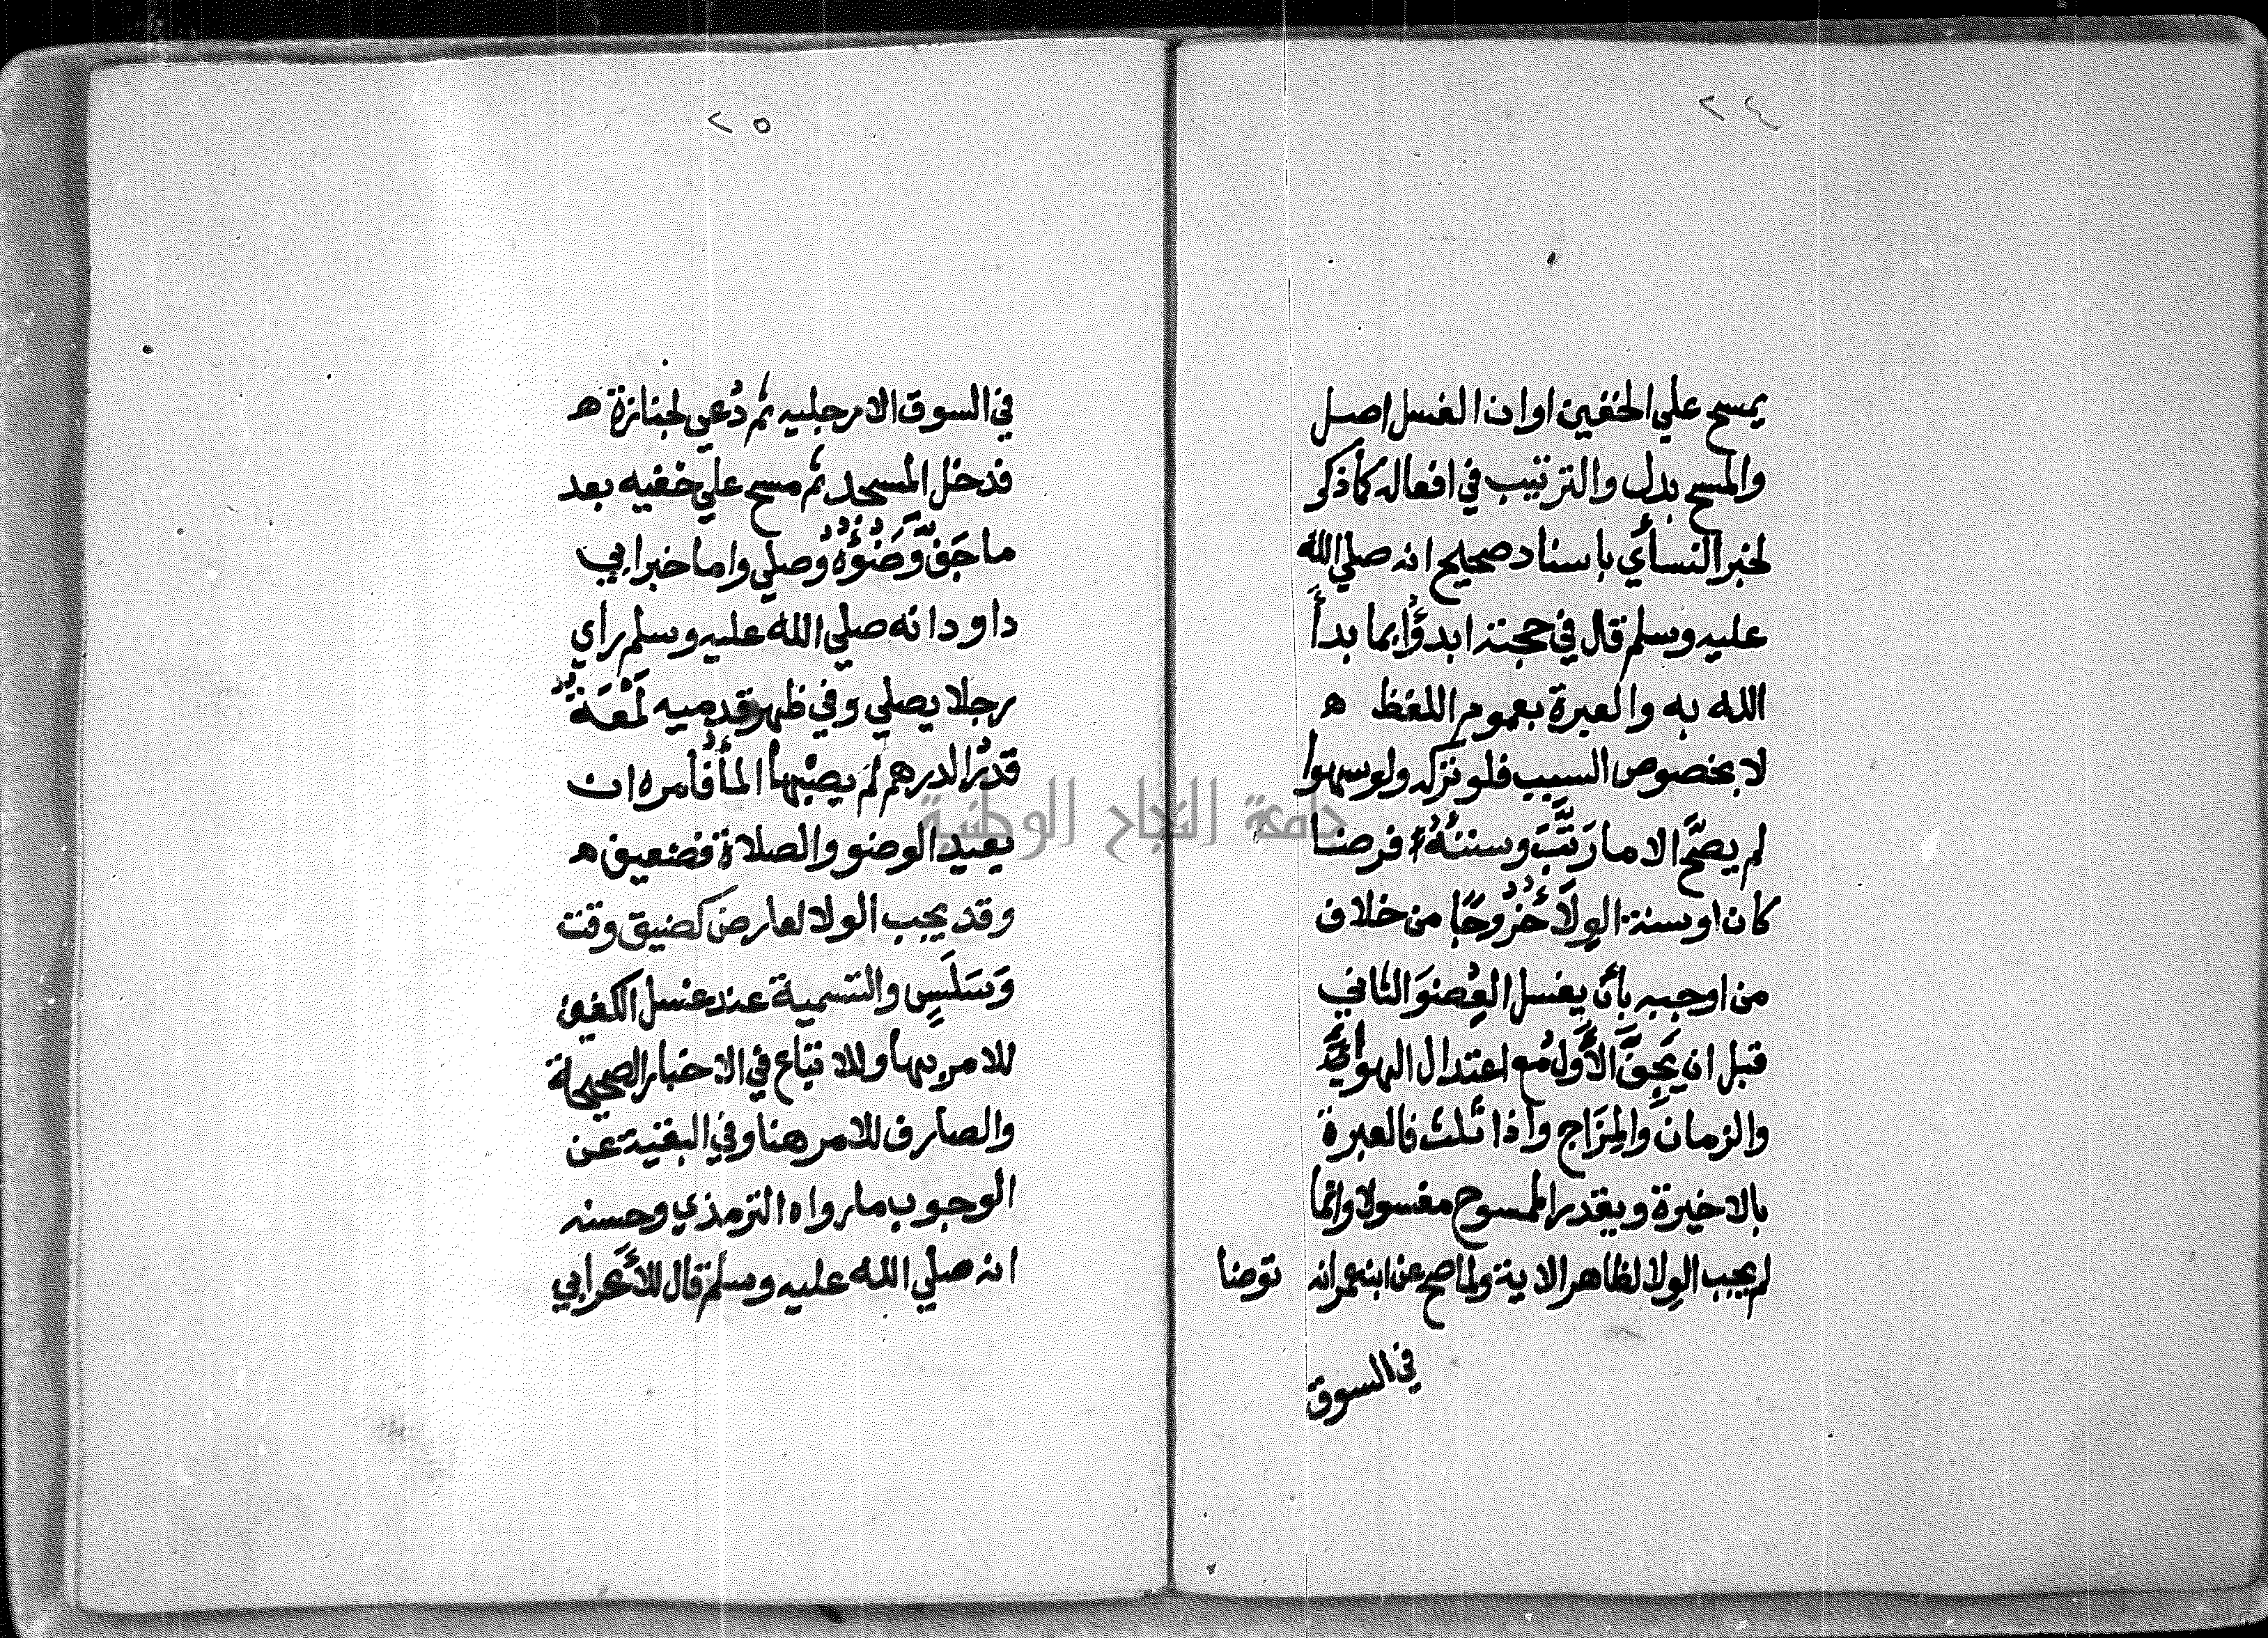 ٢٤
يمسح علي الخفين او ان الغسل اصل
والمسح بدل والترتيب في افعاله كما ذكر
لخبر النسأي باسناد صحيح انه صلي الله
عليه وسلم قال في حجته ابدؤا بما بدأ
الله به والعبرة بعموم اللفظ ه
لا بخصوص السبب فلو تركه ولو سهوا
لم يصحَّ الا ما رَتَّبَ وسننهُ فرضا
كان او سنة الوِلَا خُرُوجًا من خلاف
من اوجبه بأن يغسل العُِضوَ الثاني
قبل ان يَجِفَّ الأول مع اعتدال الهوائِ
والزمان والمِزَاج واذا ثلث فالعبرة
بالاخيرة ويقدر الممسوح مغسولا وانما
لم يجب الوِلا لظاهر الاية ولما صح عن ابن عمر انه توضا
في السوق
٢٥
في السوق الا رجليه ثم دُعي لجنازة ه
فدخل المسجد ثم مسح علي خفيه بعد
ما جَفَّ وَضُؤُهُ وصلي واما خبر ابي
داود انه صلي الله عليه وسلم رأي
رجلا يصلي وفي ظهر قدميه لَمْعَةٌ
قدرُ الدرهم لم يصبْها المأُ فأمره ان
يعيد الوضو والصلاة فضعيف ه
وقد يجب الولا لعارض كضيق وقت
وَسَلَسٍ والتسمية عند غسل الكفين
للامر بها وللاتباع في الاخبار الصحيحة
والصارف للامر هنا وفي البقية عن
الوجوب ما رواه الترمذي وحسنه
انه صلي الله عليه وسلم قال للأعرابي
جامعة النجاح الوطنية